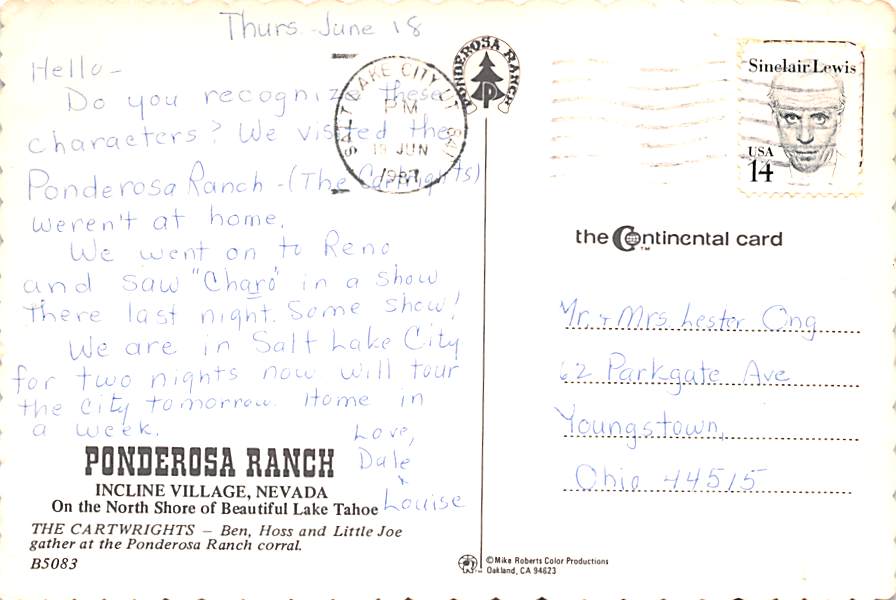 Thurs June 18
Hello-
Do you recognize these
characters? We visited the
Ponderosa Ranch - (The Cartwrights)
weren't at home.
We went on to Reno
and saw "Charo" in a show
there last night. Some show!
We are in Salt Lake City
for two nights now. Will tour
the city tomorrow. Home in
a week.
Love,
Dale
&
Louise
PONDEROSA RANCH
INCLINE VILLAGE, NEVADA
On the North Shore of Beautiful Lake Tahoe
THE CARTWRIGHTS – Ben, Hoss and Little Joe
gather at the Ponderosa Ranch corral.
B5083
SALT LAKE CITY UT
PM
19 JUN
1987
PONDEROSA RANCH
P
Sinclair Lewis
USA
14
the Continental card
TM
Mr. + Mrs. Lester Ong
62 Parkgate Ave
Youngstown,
Ohio 44515
©Mike Roberts Color Productions
Oakland, CA 94623